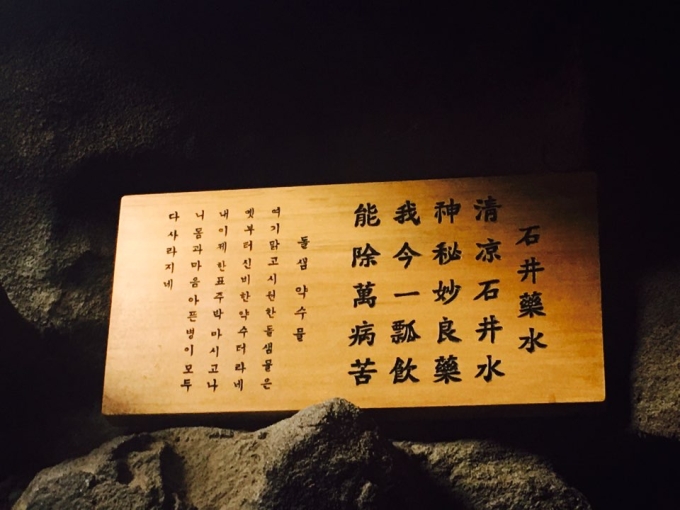 石井藥水
清凉石井水
神秘妙良藥
我今一瓢飮
能除萬病苦
돌샘 약수물
여기맑고시원한돌샘물은
옛부터신비한약수더라네
내이제한표주박마시고나
니몸과마음아픈병이모두
다사라지네